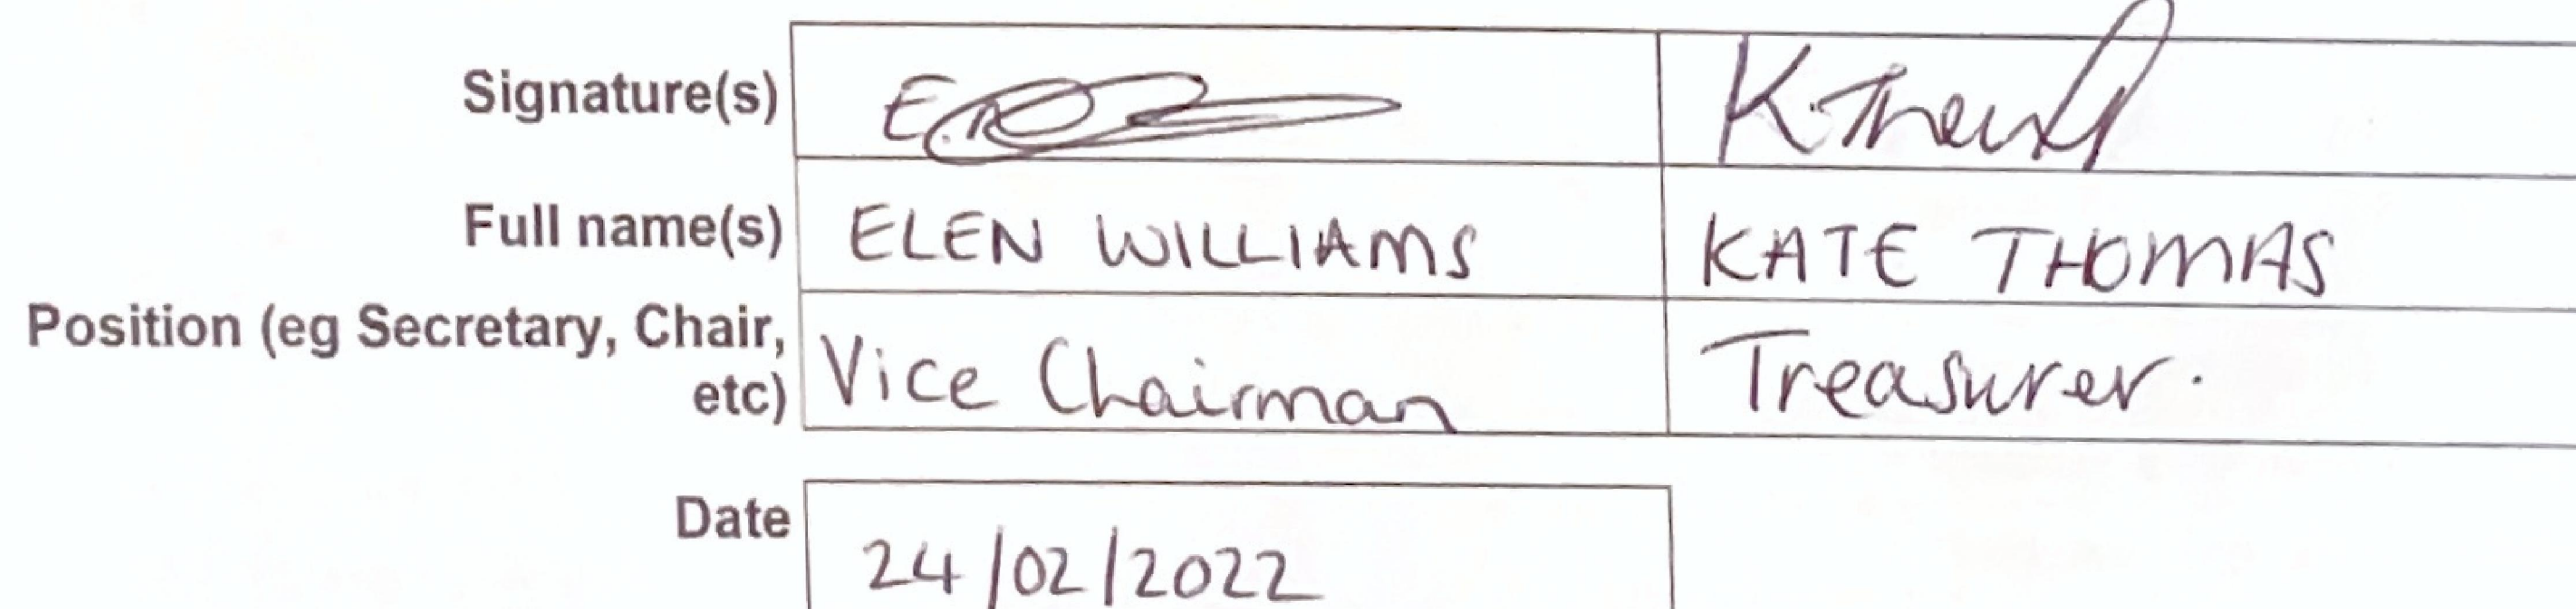 Signature(s)
Full name(s) ELEN WILLIAMS KATE THOMAS
Position (eg Secretary, Chair, etc) Vice Chairman Treasurer.
Date 24/02/2022